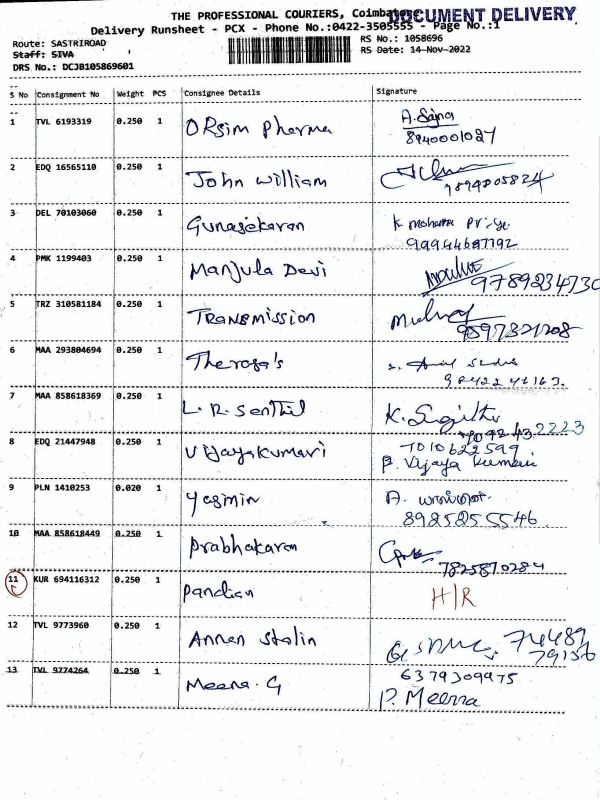 THE PROFESSIONAL COURIERS, Coimbatore
DOCUMENT DELIVERY
Delivery Runsheet - PCX - Phone No.:0422-3505555 - Page No.:1
Route: SASTRIROAD
RS No.: 1058696
Staff: SIVA
RS Date: 14-Nov-2022
DRS No.: DCJB105869601
S No Consignment No Weight PCS Consignee Details Signature
1 TVL 6193319 0.250 1 ORsim Pharma A. Sajna
8940001027
2 EDQ 16565110 0.250 1 John William
3 DEL 70103060 0.250 1 Gunasekaran K mohana Priya
99944687792
4 PMK 1199403 0.250 1 Manjula Devi
9789234730
5 TRZ 310581184 0.250 1 TRANSMISSION
9597321208
6 MAA 293804694 0.250 1 Theresa's
7 MAA 858618369 0.250 1 L. R. Senthil K. Sujitha
8 EDQ 21447948 0.250 1 Vijayakumari 7010622599
B. Vijaya Kumari
9 PLN 1410253 0.020 1 Yasmin A.
8925255546
10 MAA 858618449 0.250 1 Prabhakaran
7825870284
11 KUR 694116312 0.250 1 Pandian H/R
12 TVL 9773960 0.250 1 Annan Stalin 74489
79156
13 TVL 9774264 0.250 1 Meena. G 6379309975
P. Meena